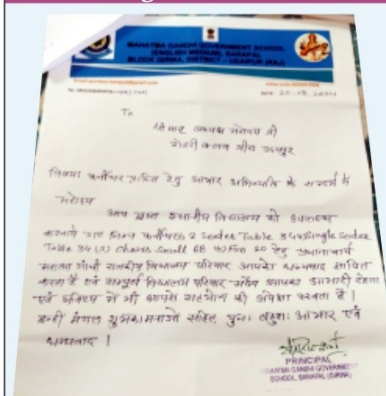 MAHATMA GANDHI GOVERNMENT SCHOOL
(ENGLISH MEDIUM), BARAPAL
BLOCK GIRWA, DISTRICT - UDAIPUR (RAJ)
To
श्रीमान अध्यक्ष महोदय जी
रोटरी क्लब मीरा उदयपुर
विषय फर्नीचर प्राप्ति हेतु आभार अभिव्यक्ति के सन्दर्भ में
महोदय
आप द्वारा स्थानीय विद्यालय को उपलब्ध
करवाये गए निम्न फर्नीचर 2 Seater Table Single Seater
Table 34 Chairs Small 68 Fan 20 हेतु प्रधानाचार्य
महात्मा गांधी राजकीय विद्यालय परिवार आपको धन्यवाद ज्ञापित
करता है एवं सम्पूर्ण विद्यालय परिवार सदैव आपका आभारी रहेगा
एवं भविष्य में भी आपके सहयोग की अपेक्षा करता है।
इन्हीं मंगल शुभकामनाओं सहित पुनः आभार एवं
धन्यवाद।
PRINCIPAL
MAHATMA GANDHI GOVERNMENT
SCHOOL, BARAPAL (UDAIPUR)